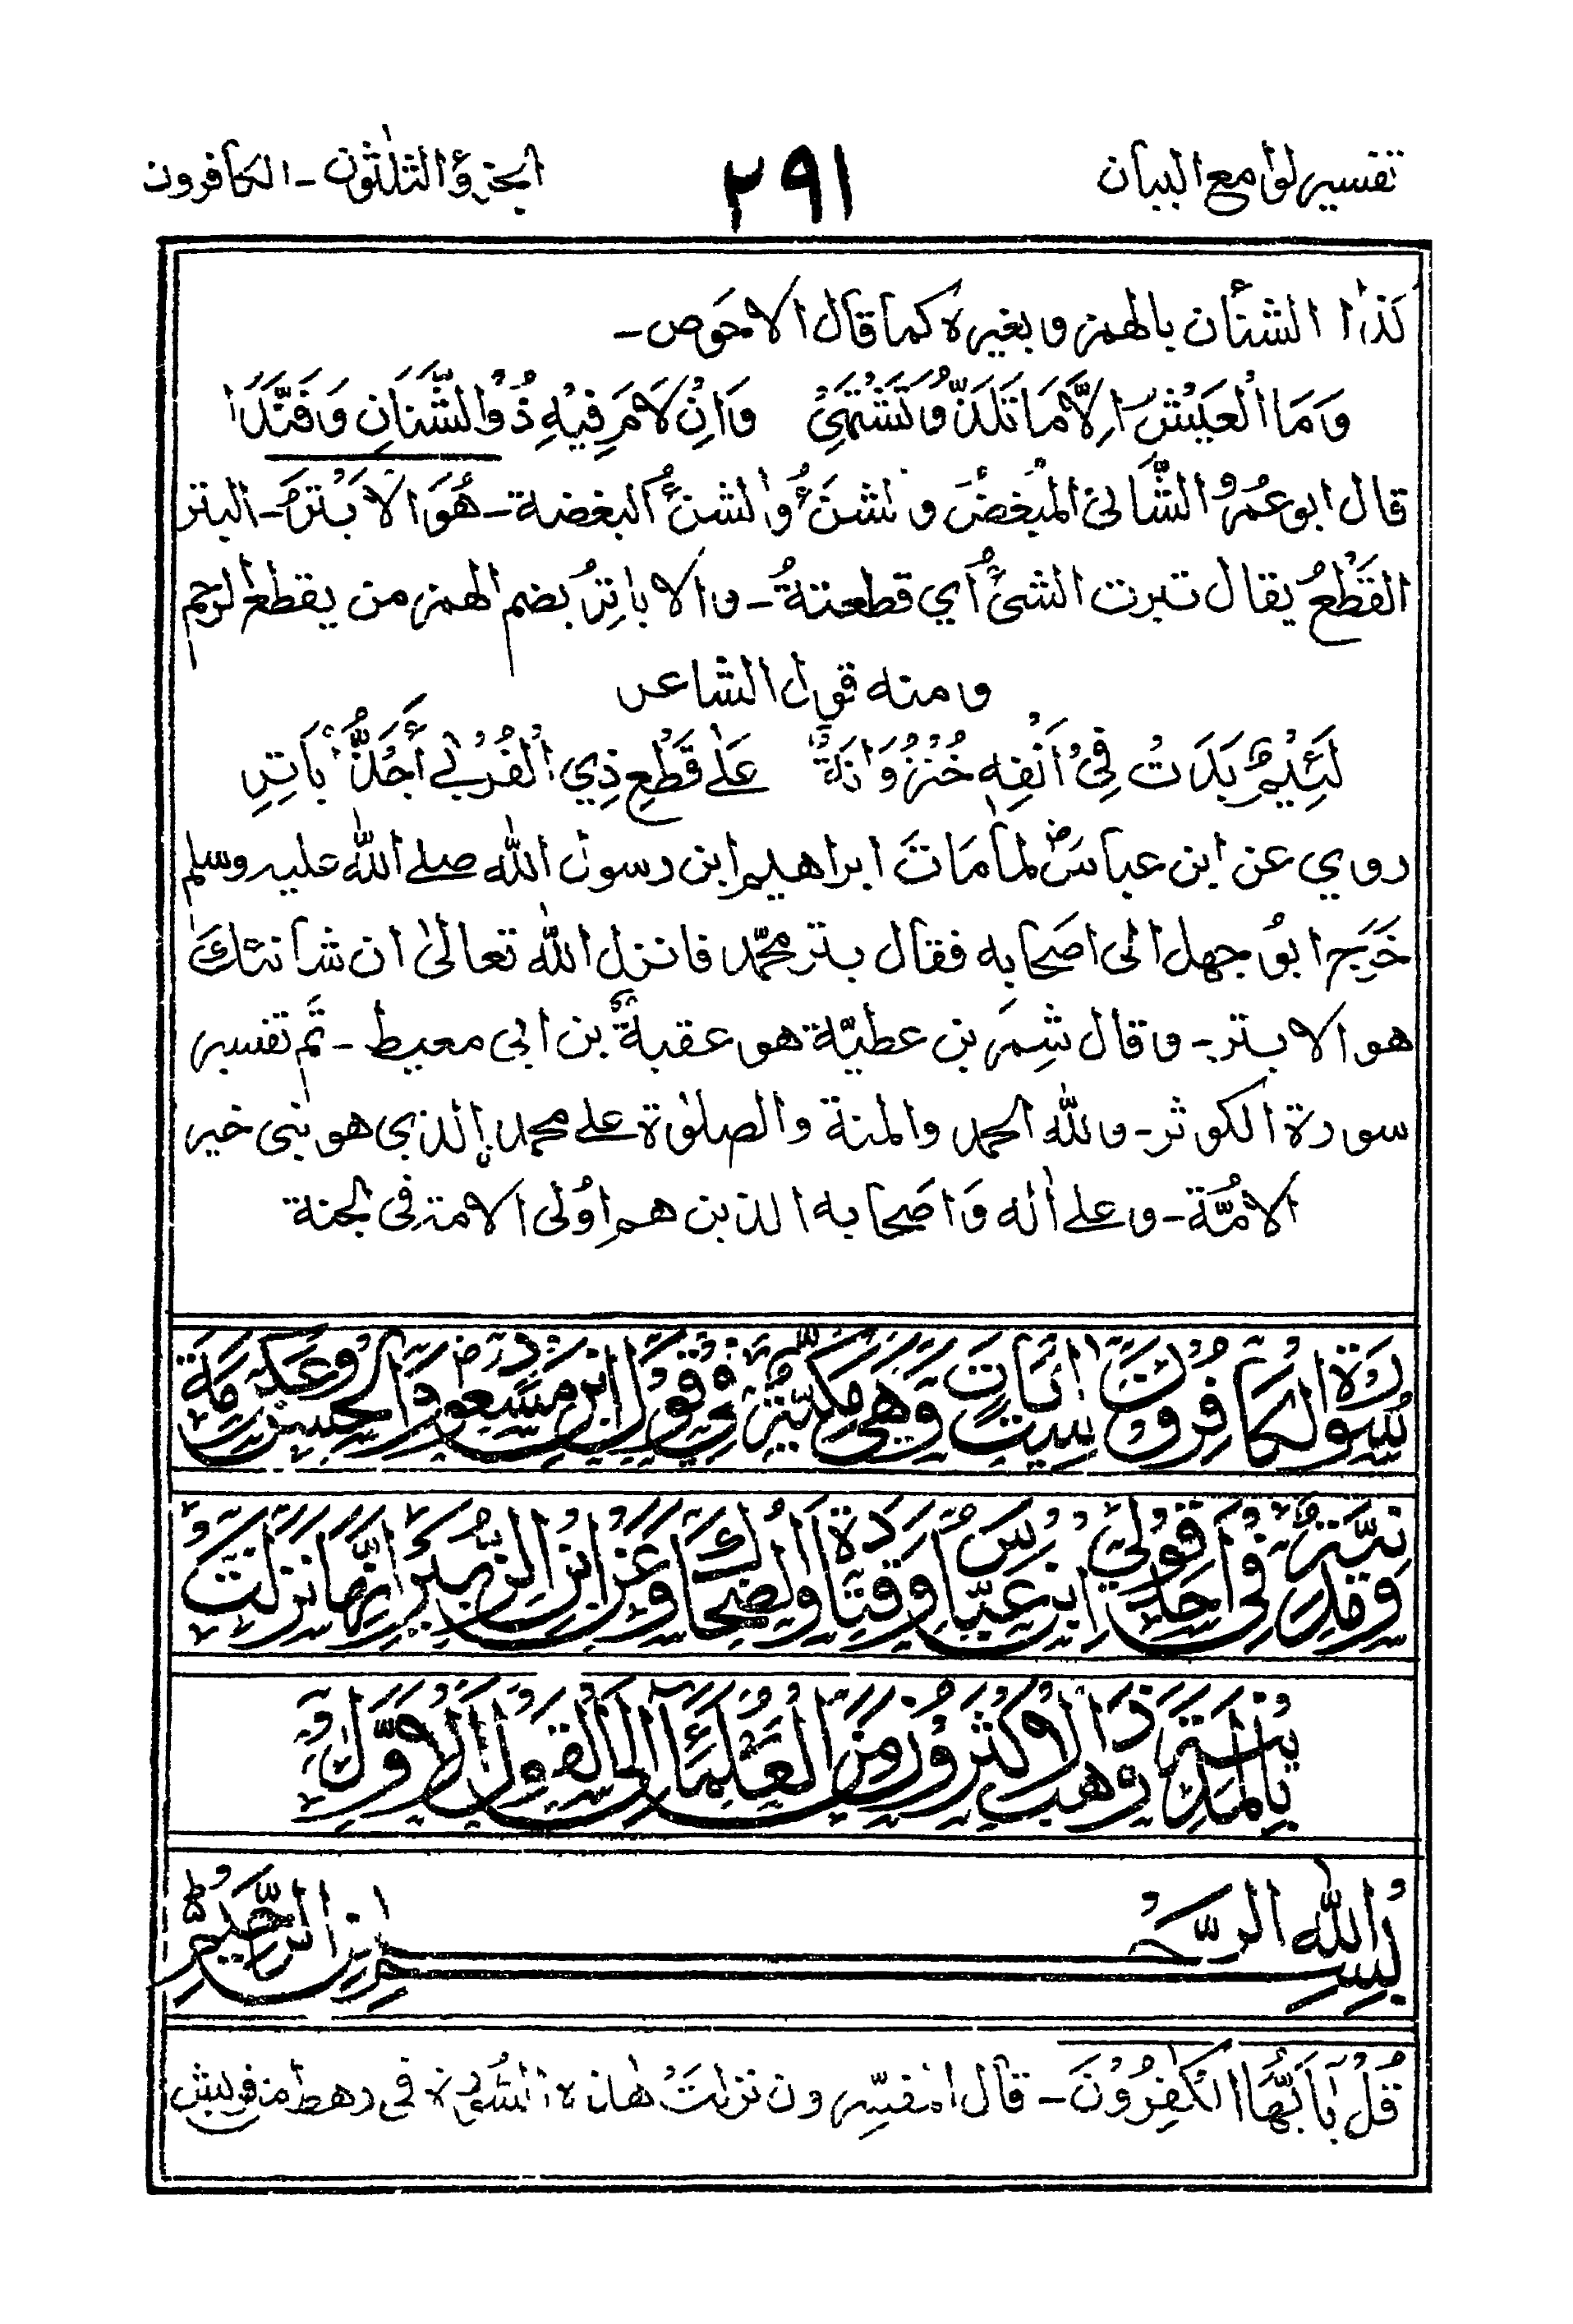 تفسير لوامع البيان
٢٩١
الجزؤ الثلثون - الكافرون
كذا الشنأن بالهمز وبغيره كما قال الاحوص -
وَمَا الْعَيْشُ اِلَّا مَا تَلَذُّ وَتَشْتَهِيْ وَاِنْ لَامَ فِيْهِ ذُو الشَّنَانِ وَفَنَّدَا
قال ابو عمرو الشَّانئ المُبغِض والشنَءُ والشنءُ البغضة - هُوَ الْاَبْتَرُ - البتر
القَطْعُ يقال بترت الشئ أي قطعتهُ - والاباتِرُ بضم الهمز من يقطع الرحم
ومنه قول الشاعر
لَئِيْمٌ بَدَتْ فِيْ اَنْفِهٖ خُنْزُوَانَةٌ عَلٰى قَطْعِ ذِي الْقُرْبٰى أَحَذُّ أُبَاتِرِ
روي عن ابن عباسؓ لما مَاتَ ابراهيم ابن رسول الله صلى الله عليه وسلم
خَرَجَ ابو جهل الى اصحابه فقال بتر محمّد فانزل الله تعالى ان شانئك
هو الابتر - وقال شِمَر بن عطيّة هو عقبة بن ابي معيط - تَّم تفسير
سورة الكوثر - ولله الحمد والمنة والصلوٰة على محمد الذي هو نبي خير
الامُّة - وعلى اٰله وَاصحابه الذين هم اوُلى الامة في الجنة
سُورَةُ الْكَافِرُوْنَ سِتُّ اٰيَاتٍ وَهِيَ مَكِّيَّةٌ فِيْ قَوْلِ ابْنِ مَسْعُوْدٍ رض وَالْحَسَنِ وَعِكْرِمَةَ
وَمَدَنِيَّةٌ فِيْ اَحَدِ قَوْلَيْ ابْنِ عَبَّاسٍ وَقَتَادَةَ وَالضَّحَّاكِ وَعَنِ ابْنِ الزُّبَيْرِ اَنَّهَا نَزَلَتْ
بِالْمَدِيْنَةِ وَذَهَبَ الْاَكْثَرُوْنَ مِنَ الْعُلَمَاءِ اِلَى الْقَوْلِ الْاَوَّلِ
بِسْمِ اللهِ الرَّحْمٰنِ الرَّحِيْمِ
قُلْ يٰاَيُّهَا الْكٰفِرُوْنَ - قال المفسّرون نزلتْ هذه السُّورة في رهط من قريش